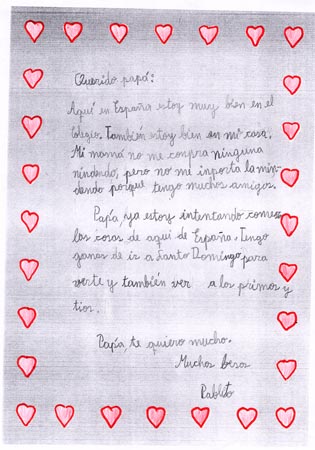 Querido papá:
Aquí en España estoy muy bien en el
colegio. También estoy bien en mi casa.
Mi mamá no me compra ninguna
nindendo, pero no me inporta la nin-
dendo porque tengo muchos amigos.
Papá, ya estoy intentando comer
las cosas de aqui de España. Tengo
ganas de ir a Santo Domingo para
verte y también ver a los primos y
tios.
Papá te quiero mucho.
Muchos besos
Pablito